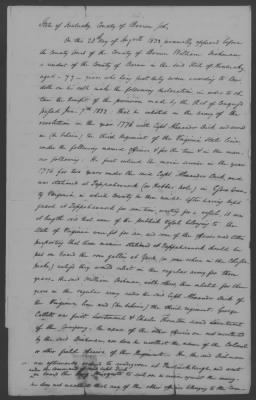 State of Kentucky County of Barren Sct.
On the 20th day of August 1833 personally appeared before
the County Court of the County of Barren William Dickerson
a resident of the County of Barren in the said State of Kentucky
aged 77 years who being first duly sworn according to law
doth on his oath make the following declaration in order to ob-
tain the benefit of the provision made by the Act of Congress
passed June 7th 1832 That he enlisted in the army of the
revolution in the year 1776 with Capt Alexander Dick and served
in (he believes) the third Regiment of the Virginia State line
under the following named officers & for the time & in the man-
ner following. He first entered the marine service in the year
1776 for two years under the said Capt Alexander Dick and
was stationed at Tappahannock (or Hobbs hole) in Essex Coun-
ty Virginia in which County he then resided. After having kept
guard at Tappahannock for months, waiting for a vessel, it was
at length said that none of the vessels belonging to the
State of Virginia was fit for use and one of the officers was
purporting that these marines stationed at Tappahannock should be
put on board the row gallies at York, (or some where in the Chesa-
peake) unless they would enlist in the regular army for three
years. the said William with others then enlisted for three
years in the regular army under the said Capt Alexander Dick of
the Virginia line and (he believes) the third regiment. George
Catlett was first Lieutenant & Charles Second Lieutenant
of the Company. The name of the other officers are not
by the said nor does he recollect the name of the Colonel
or other field officers of the Regiment. He the said
was afterwards ordered to Fredericksburg, and went
under the command of said Capt Dick
on board the Mosquito
he does not recollect that any of the other officers belonging to the